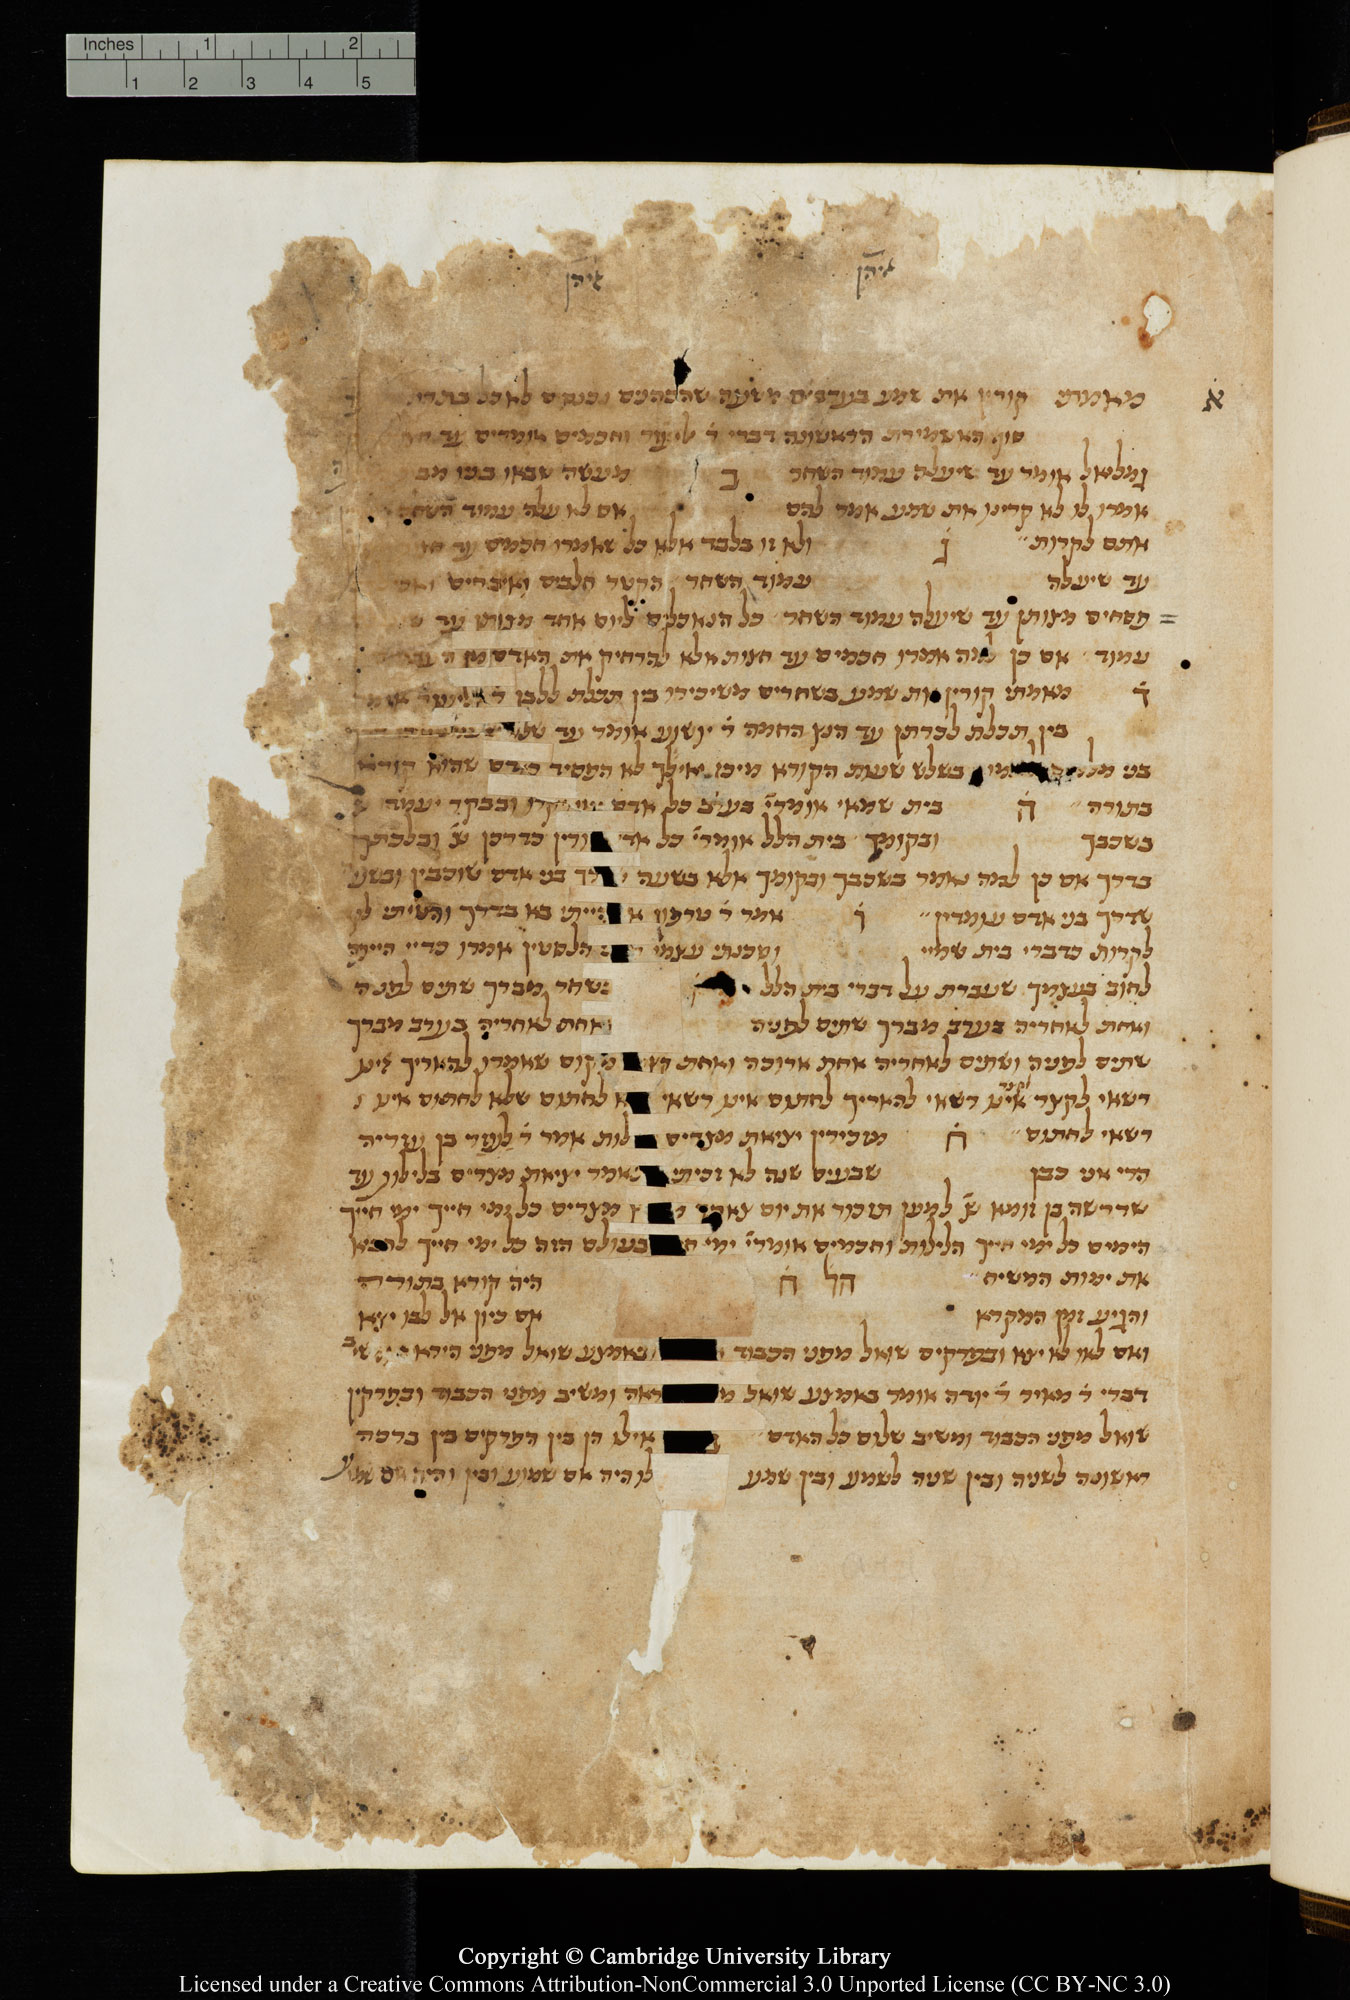 Inches 1 2
1 2 3 4 5
איהן איהן
א
מאמתי קורין את שמע בערבים משעה שהכהנים נכנסים לאכל בתרומתן
סוף האשמורת הראשונה דברי ר׳ ליעזר וחכמים אומרים עד
גמליאל אומר עד שיעלה עמוד השחר ב מעשה שבאו בניו
אמרו לו לא קרינו את שמע אמר להם אם לא עלה עמוד השחר
אתם לקרות ג ולא זו בלבד אלא כל שאמרו חכמים עד
עד שיעלה עמוד השחר הקטר חלבים ואיברים
פסחים מצותן עד שיעלה עמוד השחר כל הנאכלים ליום אחד מצותן עד
עמוד אם כן למה אמרו חכמים עד חצות אלא להרחיק את האדם מן
ד מאמתי קורין את שמע בשחרים משיכירו בין תכלת ללבן ר׳ ליעזר אומר
בין תכלת לכרתן עד הנץ החמה ר׳ יושוע אומר עד
בני בשלש שעות הקורא מיכן ואילך לא הפסיד כאדם שהוא קורא
בתורה ה בית שמאי אומר׳ בערב כל אדם ובבקר יעמדו
בשכבך ובקומך בית הלל אומר׳ כל כדרכן ובלכתך
בדרך אם כן למה נאמר בשכבך ובקומך אלא בשעה בני אדם שוכבין
שדרך בני אדם עומדין ו אמר ר׳ טרפון בא בדרך והטיתי
לקרות כדברי בית שמיי וסכנתי עצמי הלסטין אמרו כדיי היית
לחוב בעצמך שעברת על דברי בית הלל ז בשחר מברך שתים לפניה
ואחת לאחריה בערב מברך שתים לפניה ואחת לאחריה בערב מברך
שתים לפניה ושתים לאחריה אחת ארוכה ואחת מקום שאמרו להאריך אינו
רשאי לקצר לקצר אינו רשאי להאריך לחתום אינו רשאי לחתום שלא לחתום אינו
רשאי לחתום ח מזכירין יציאת מצרים אמר ר׳ לעזר בן עזריה
הרי אני כבן שבעים שנה לא זכיתי יציאת מצרים בלילות עד
שדרשה בן זומא למען תזכור את יום צאתך מצרים כל ימי חייך ימי חייך
הימים כל ימי חייך הלילות וחכמים אומר׳ ימי בעולם הזה כל ימי חייך להביא
את ימות המשיח הל ח היה קורא בתורה
והגיע זמן המקרא אם כיון אל לבו יצא
ואם לאו לא יצא ובפרקים שואל מפני הכבוד ובאמצע שואל מפני היראה
דברי ר׳ מאיר ר׳ יודה אומר באמצע שואל ומשיב מפני הכבוד ובפרקין
שואל מפני הכבוד ומשיב שלום כל האדם אילו הן בין הפרקים בין ברכה
ראשונה לשניה ובין שניה לשמע ובין שמע והיה אם שמוע ובין והיה אם שמוע
Copyright © Cambridge University Library
Licensed under a Creative Commons Attribution-NonCommercial 3.0 Unported License (CC BY-NC 3.0)